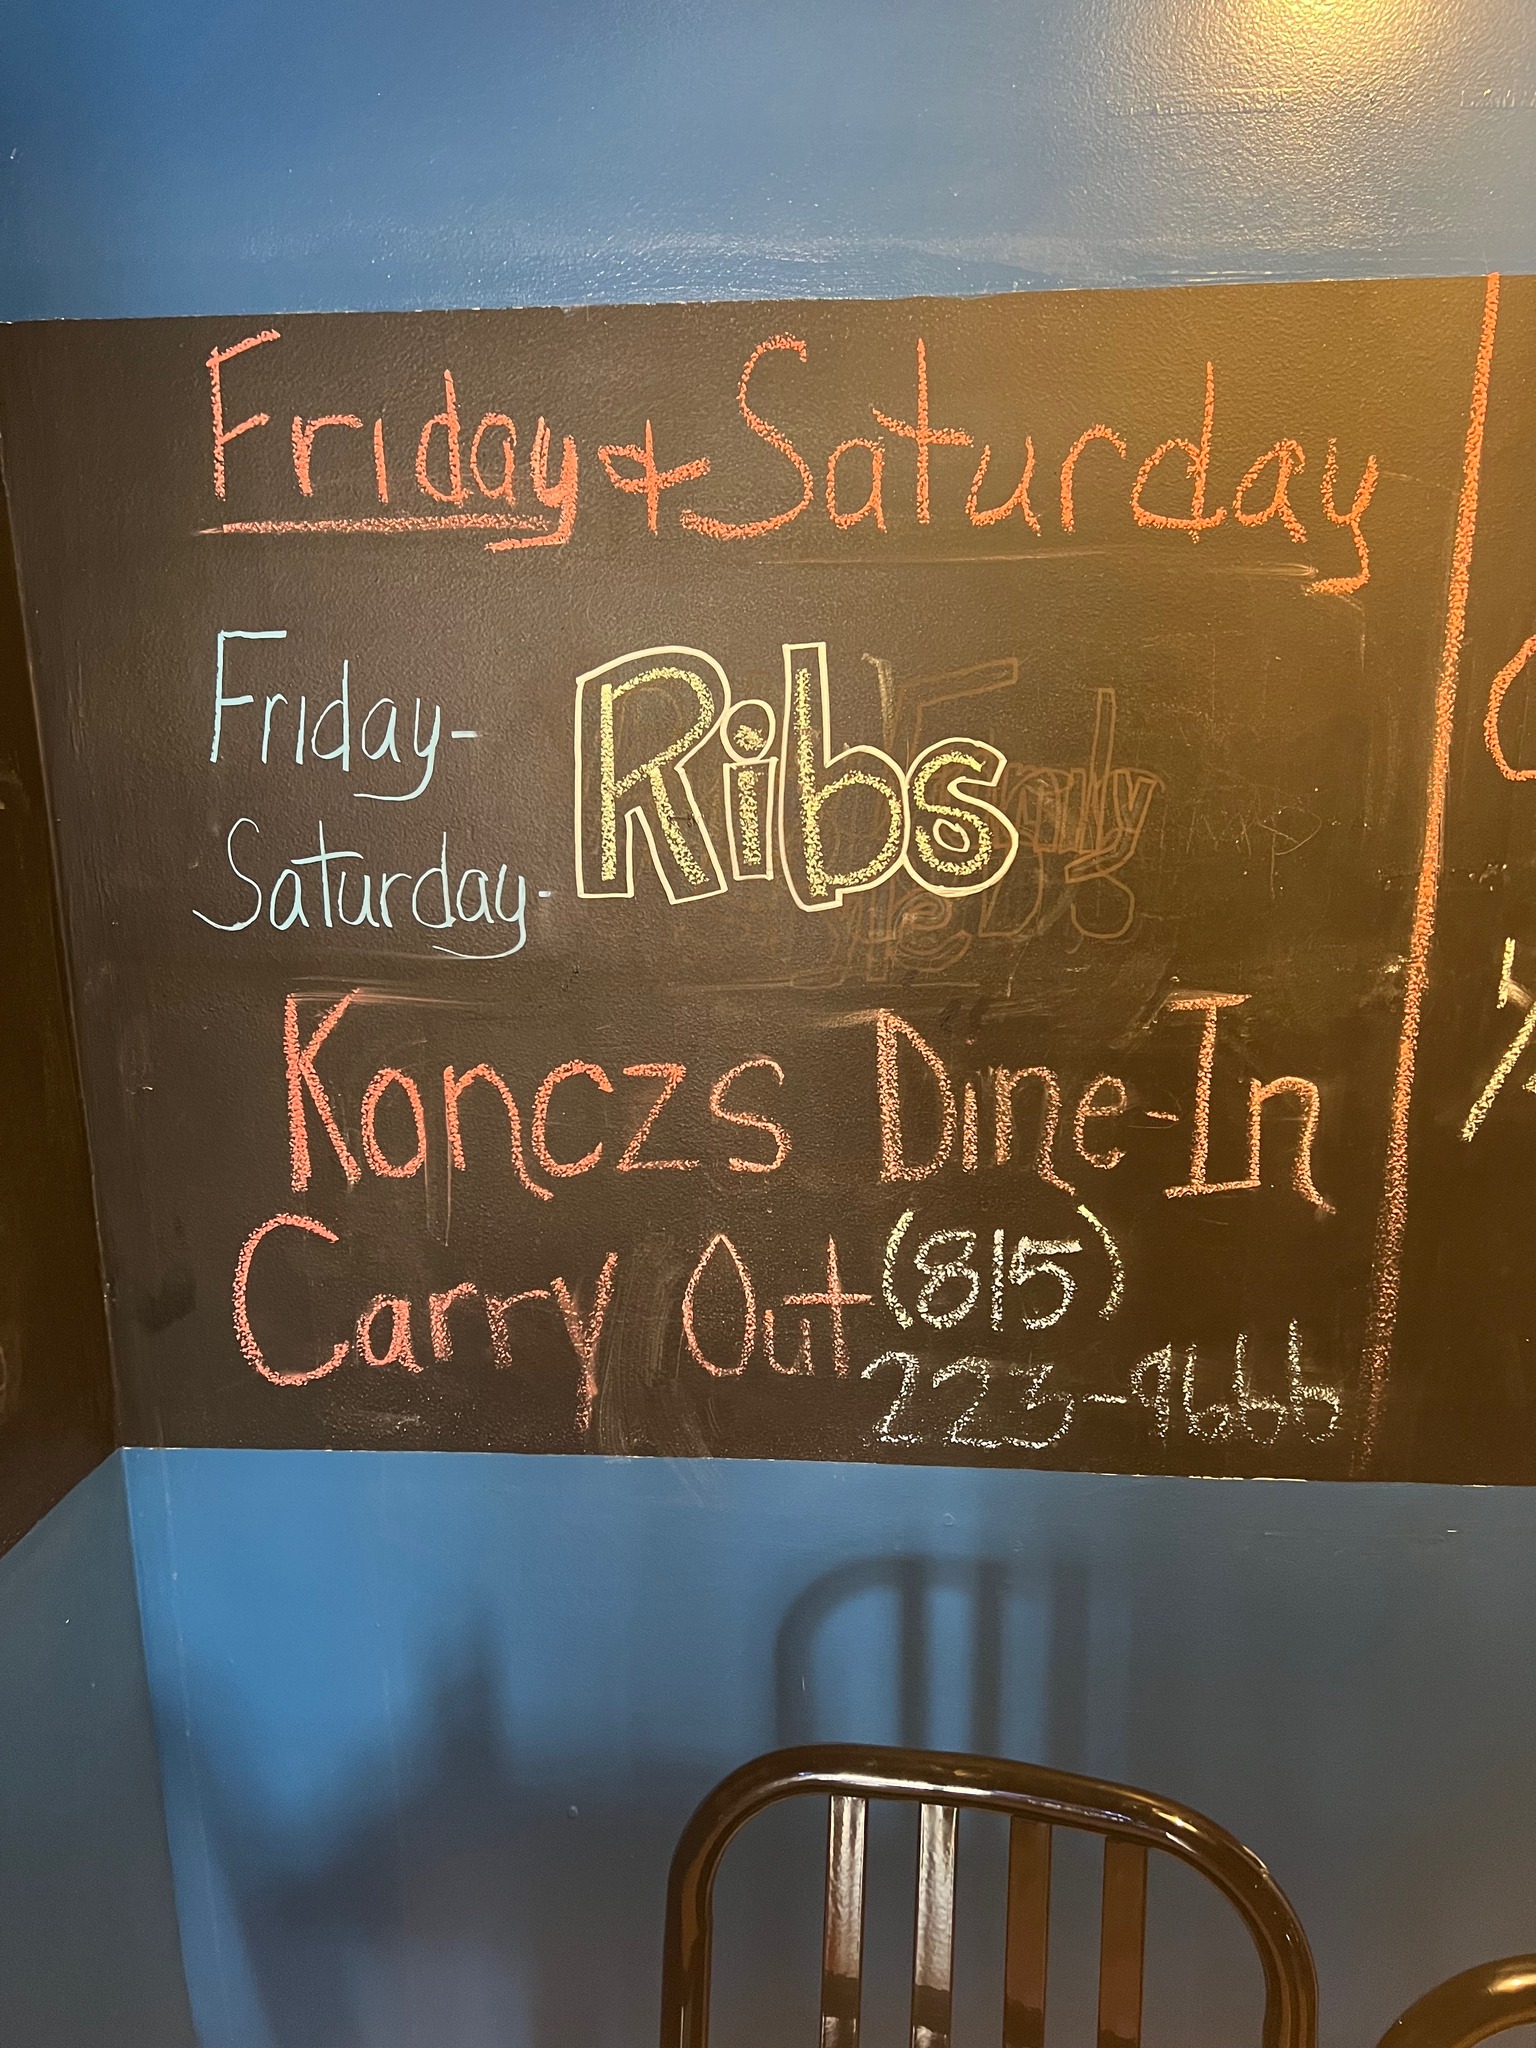 Friday & Saturday
Friday-
Ribs
Saturday-
Konczs Dine-In
Carry Out (815)
223-9666